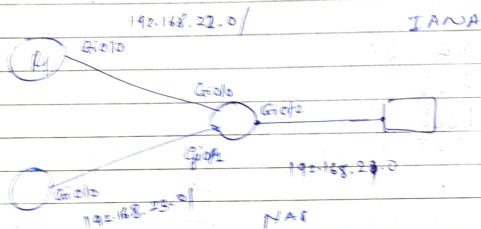 192.168.22.0/
IANA
Gi0/0
R1
Gi0/0
Gi0/2
Gi0/1
192.168.23.0
Gi0/0
192.168.23.0/